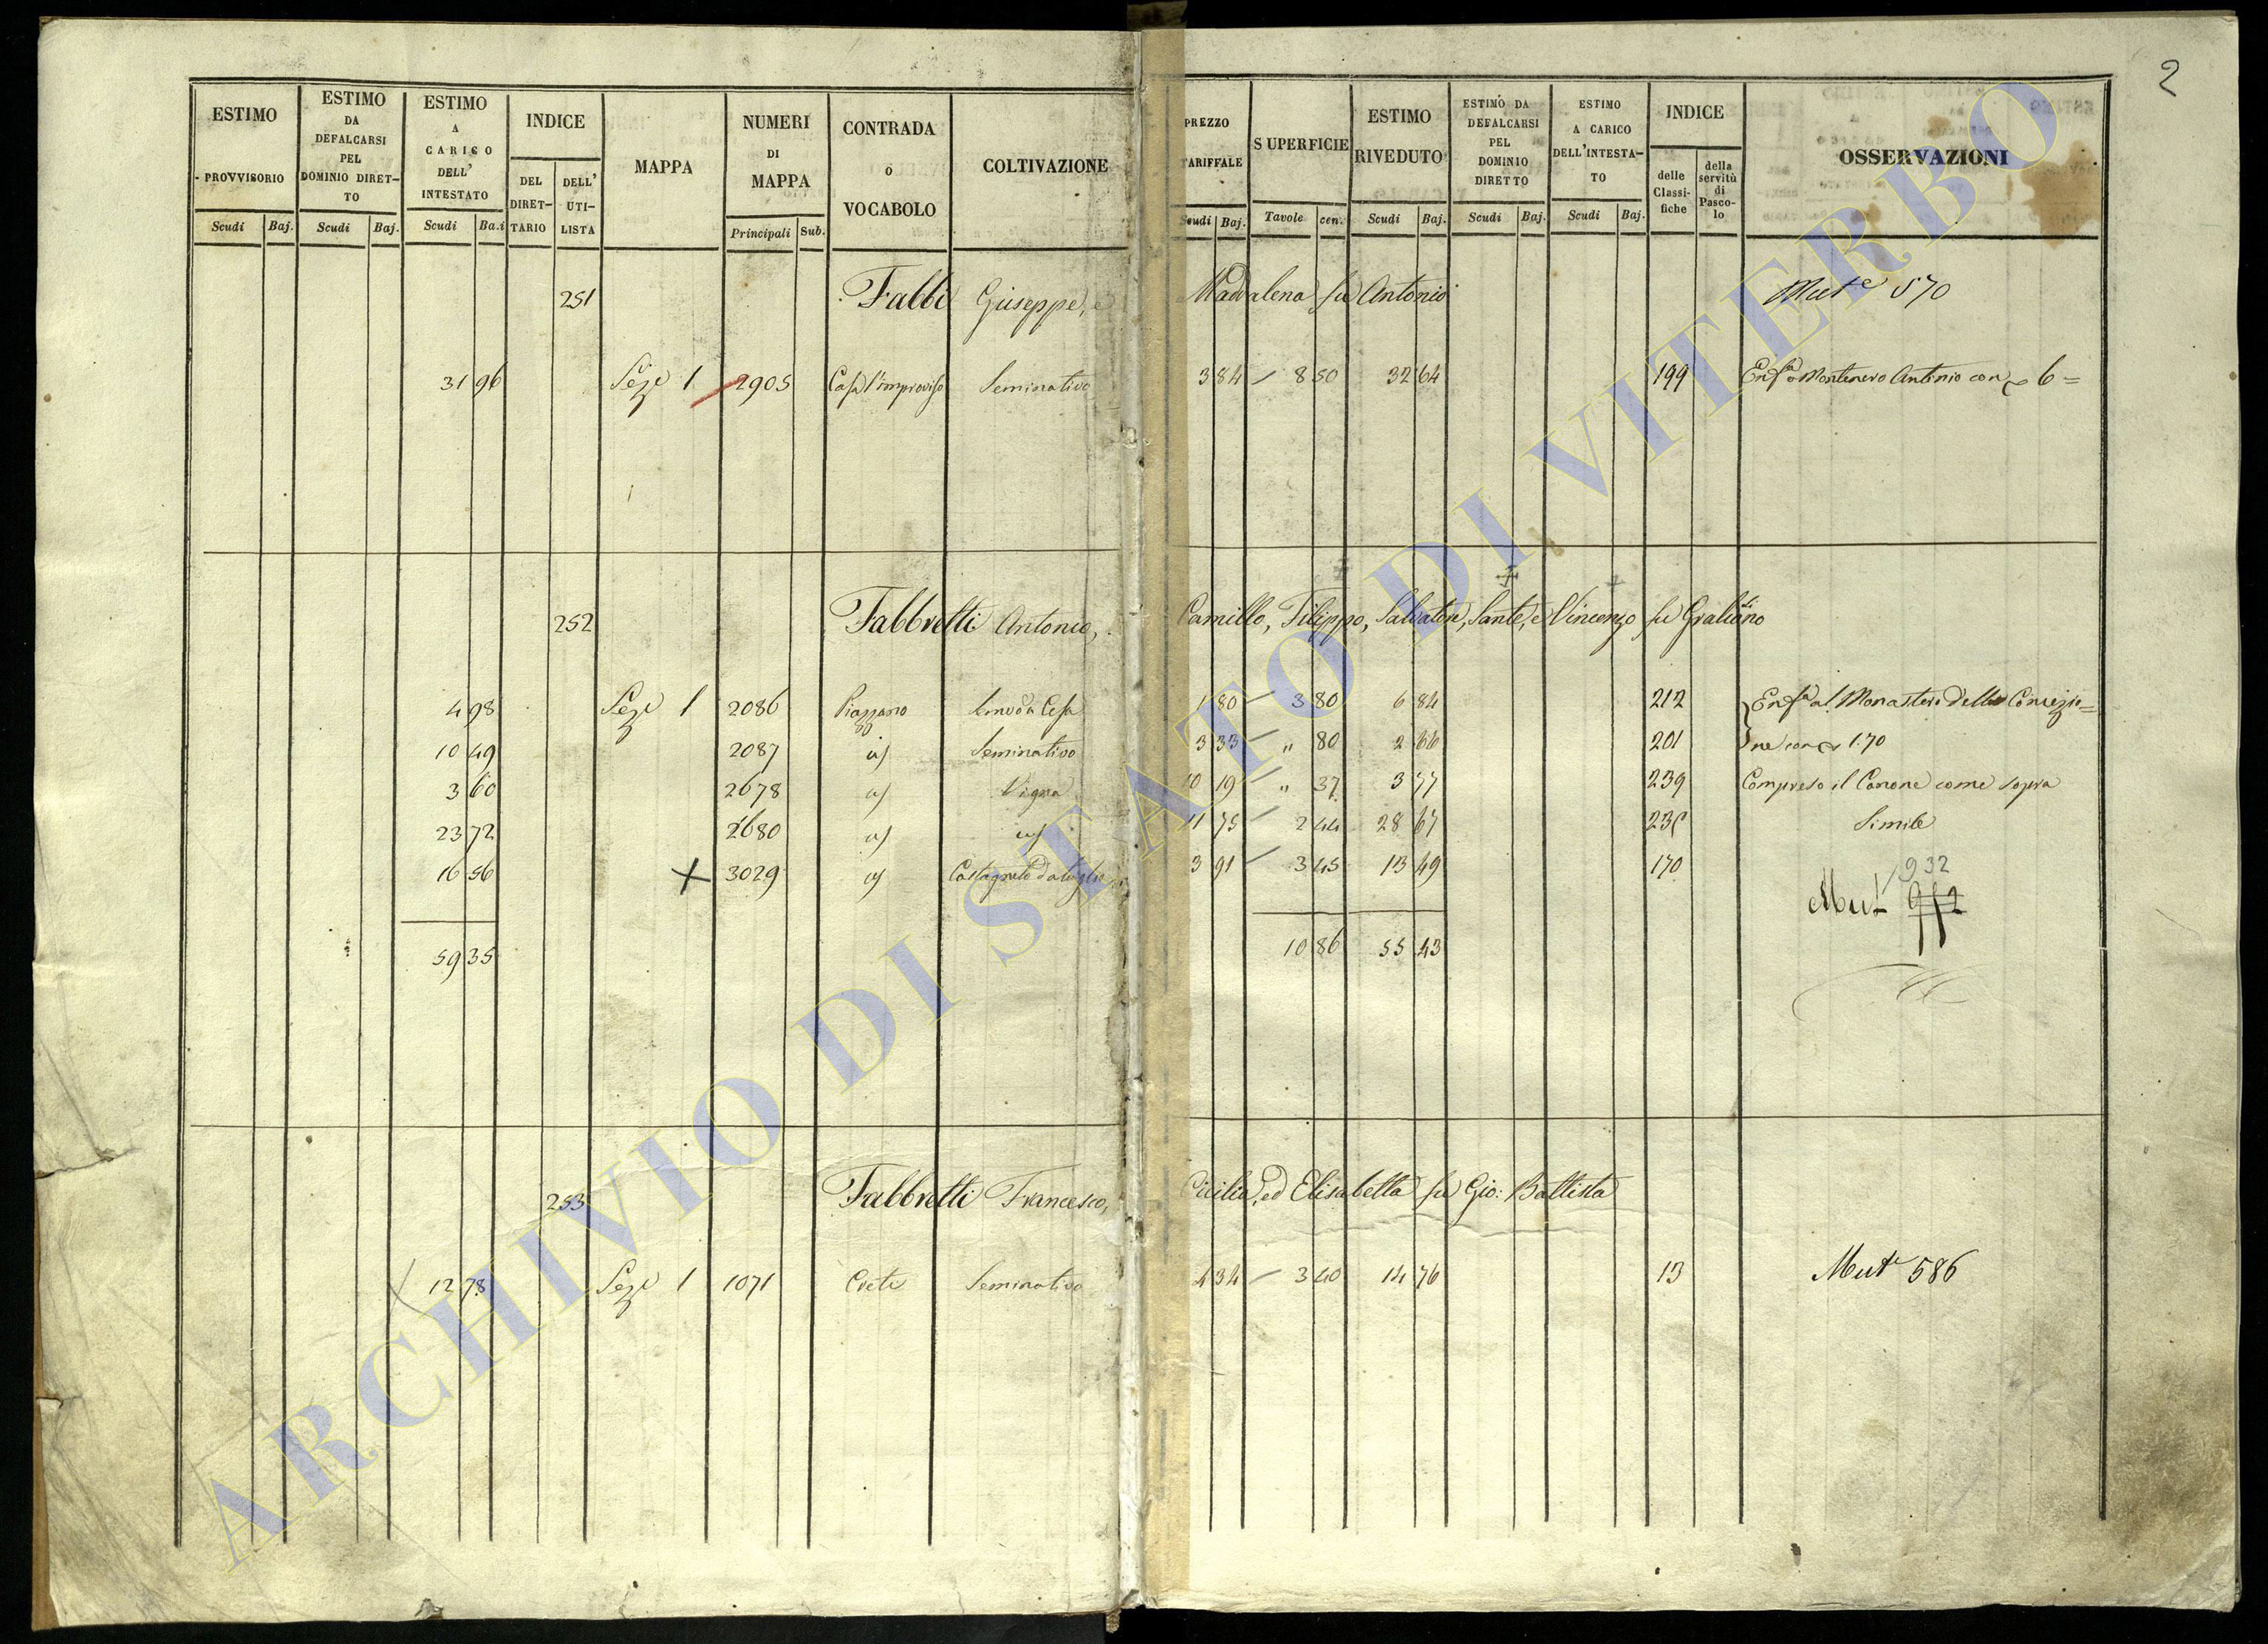 2
ESTIMO PROVVISORIO Scudi Baj.
ESTIMO DA DEFALCARSI PEL DOMINIO DIRET-TO Scudi Baj.
ESTIMO A CARICO DELL' INTESTATO Scudi Ba.i
INDICE DEL DIRET-TARIO DELL' UTI-LISTA
MAPPA
NUMERI DI MAPPA Principali Sub.
CONTRADA o VOCABOLO
COLTIVAZIONE
PREZZO TARIFFALE Scudi Baj.
SUPERFICIE Tavole cen.
ESTIMO RIVEDUTO Scudi Baj.
ESTIMO DA DEFALCARSI PEL DOMINIO DIRETTO Scudi Baj.
ESTIMO A CARICO DELL'INTESTA-TO Scudi Baj.
INDICE delle Classi-fiche della servitù di Pasco-lo
OSSERVAZIONI
251 Fabbi Giuseppe, e Maddalena fu Antonio Mut.e 570
31 96 Seze 1 2905 Casa l'improviso Seminativo 3 84 8 50 32 64 199 Enf.a Montenero Antonio con 6 =
252 Fabbretti Antonio, Camillo, Filippo, Salvatore, Sante, e Vincenzo fu Gratiano
4 98 Seze 1 2086 Piazzano 1 80 3 80 6 84 212 Enf.a al Monastero della Concezio=
10 49 2087 a) Seminativo 3 33 " 80 2 66 201 ne con 1:70
3 60 2678 a) Vigna 10 19 " 37 3 77 239 Compreso il Canone come sopra
23 72 2680 a) a) 11 75 2 44 28 67 Simile
16 56 3029 a) Castagneto da taglio 3 91 3 45 13 49 170 932
Mut.
59 35 10 86 55 43
253 Fabbretti Francesco, Cicilia, ed Elisabetta fu Gio: Battista
12 78 Seze 1 1071 Crete Seminativo 4 34 3 40 14 76 13 Mut.e 586
ARCHIVIO DI STATO DI VITERBO